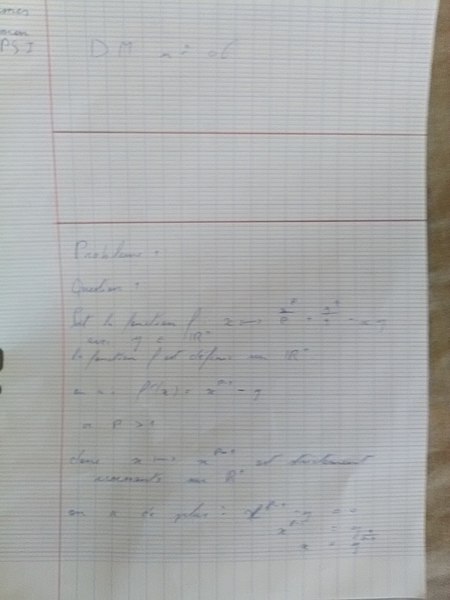 PSI
DM n° 06
Problème 1
Question 1
Soit la fonction f x ⟼ x^p/p + y^q/q - xy
avec y ∈ ℝ⁺
la fonction f est définie sur ℝ⁺
on a : f'(x) = x^{p-1} - y
or p > 1
donc x ⟼ x^{p-1} est strictement
croissante sur ℝ⁺
on a de plus : x^{p-1} - y = 0
x^{p-1} = y
x =